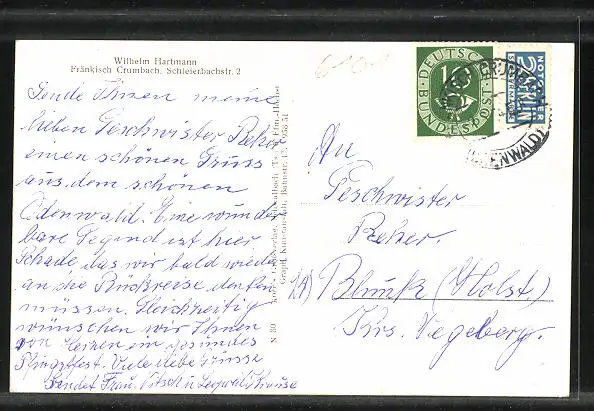 Wilhelm Hartmann
Fränkisch Crumbach, Schleierbachstr. 2
Sende Ihnen meine
lieben Geschwister Reher
einen schönen Gruss
aus dem schönen
Odenwald. Eine wunder
bare Gegend ist hier
Schade das wir bald wieder
an die Rückreise denken
müssen. Gleichzeitig
wünschen wir Ihnen
von Herzen ein gesundes
Pfingstfest. Viele liebe Grüsse
sendet Frau u. Leopold Krause
DEUTSCHE
BUNDESPOST
10
NOTOPFER
2 BERLIN
STEUERMARKE
ODENWALD
An
Geschwister
Reher.
Blunk (Holst.)
Krs. Segeberg.